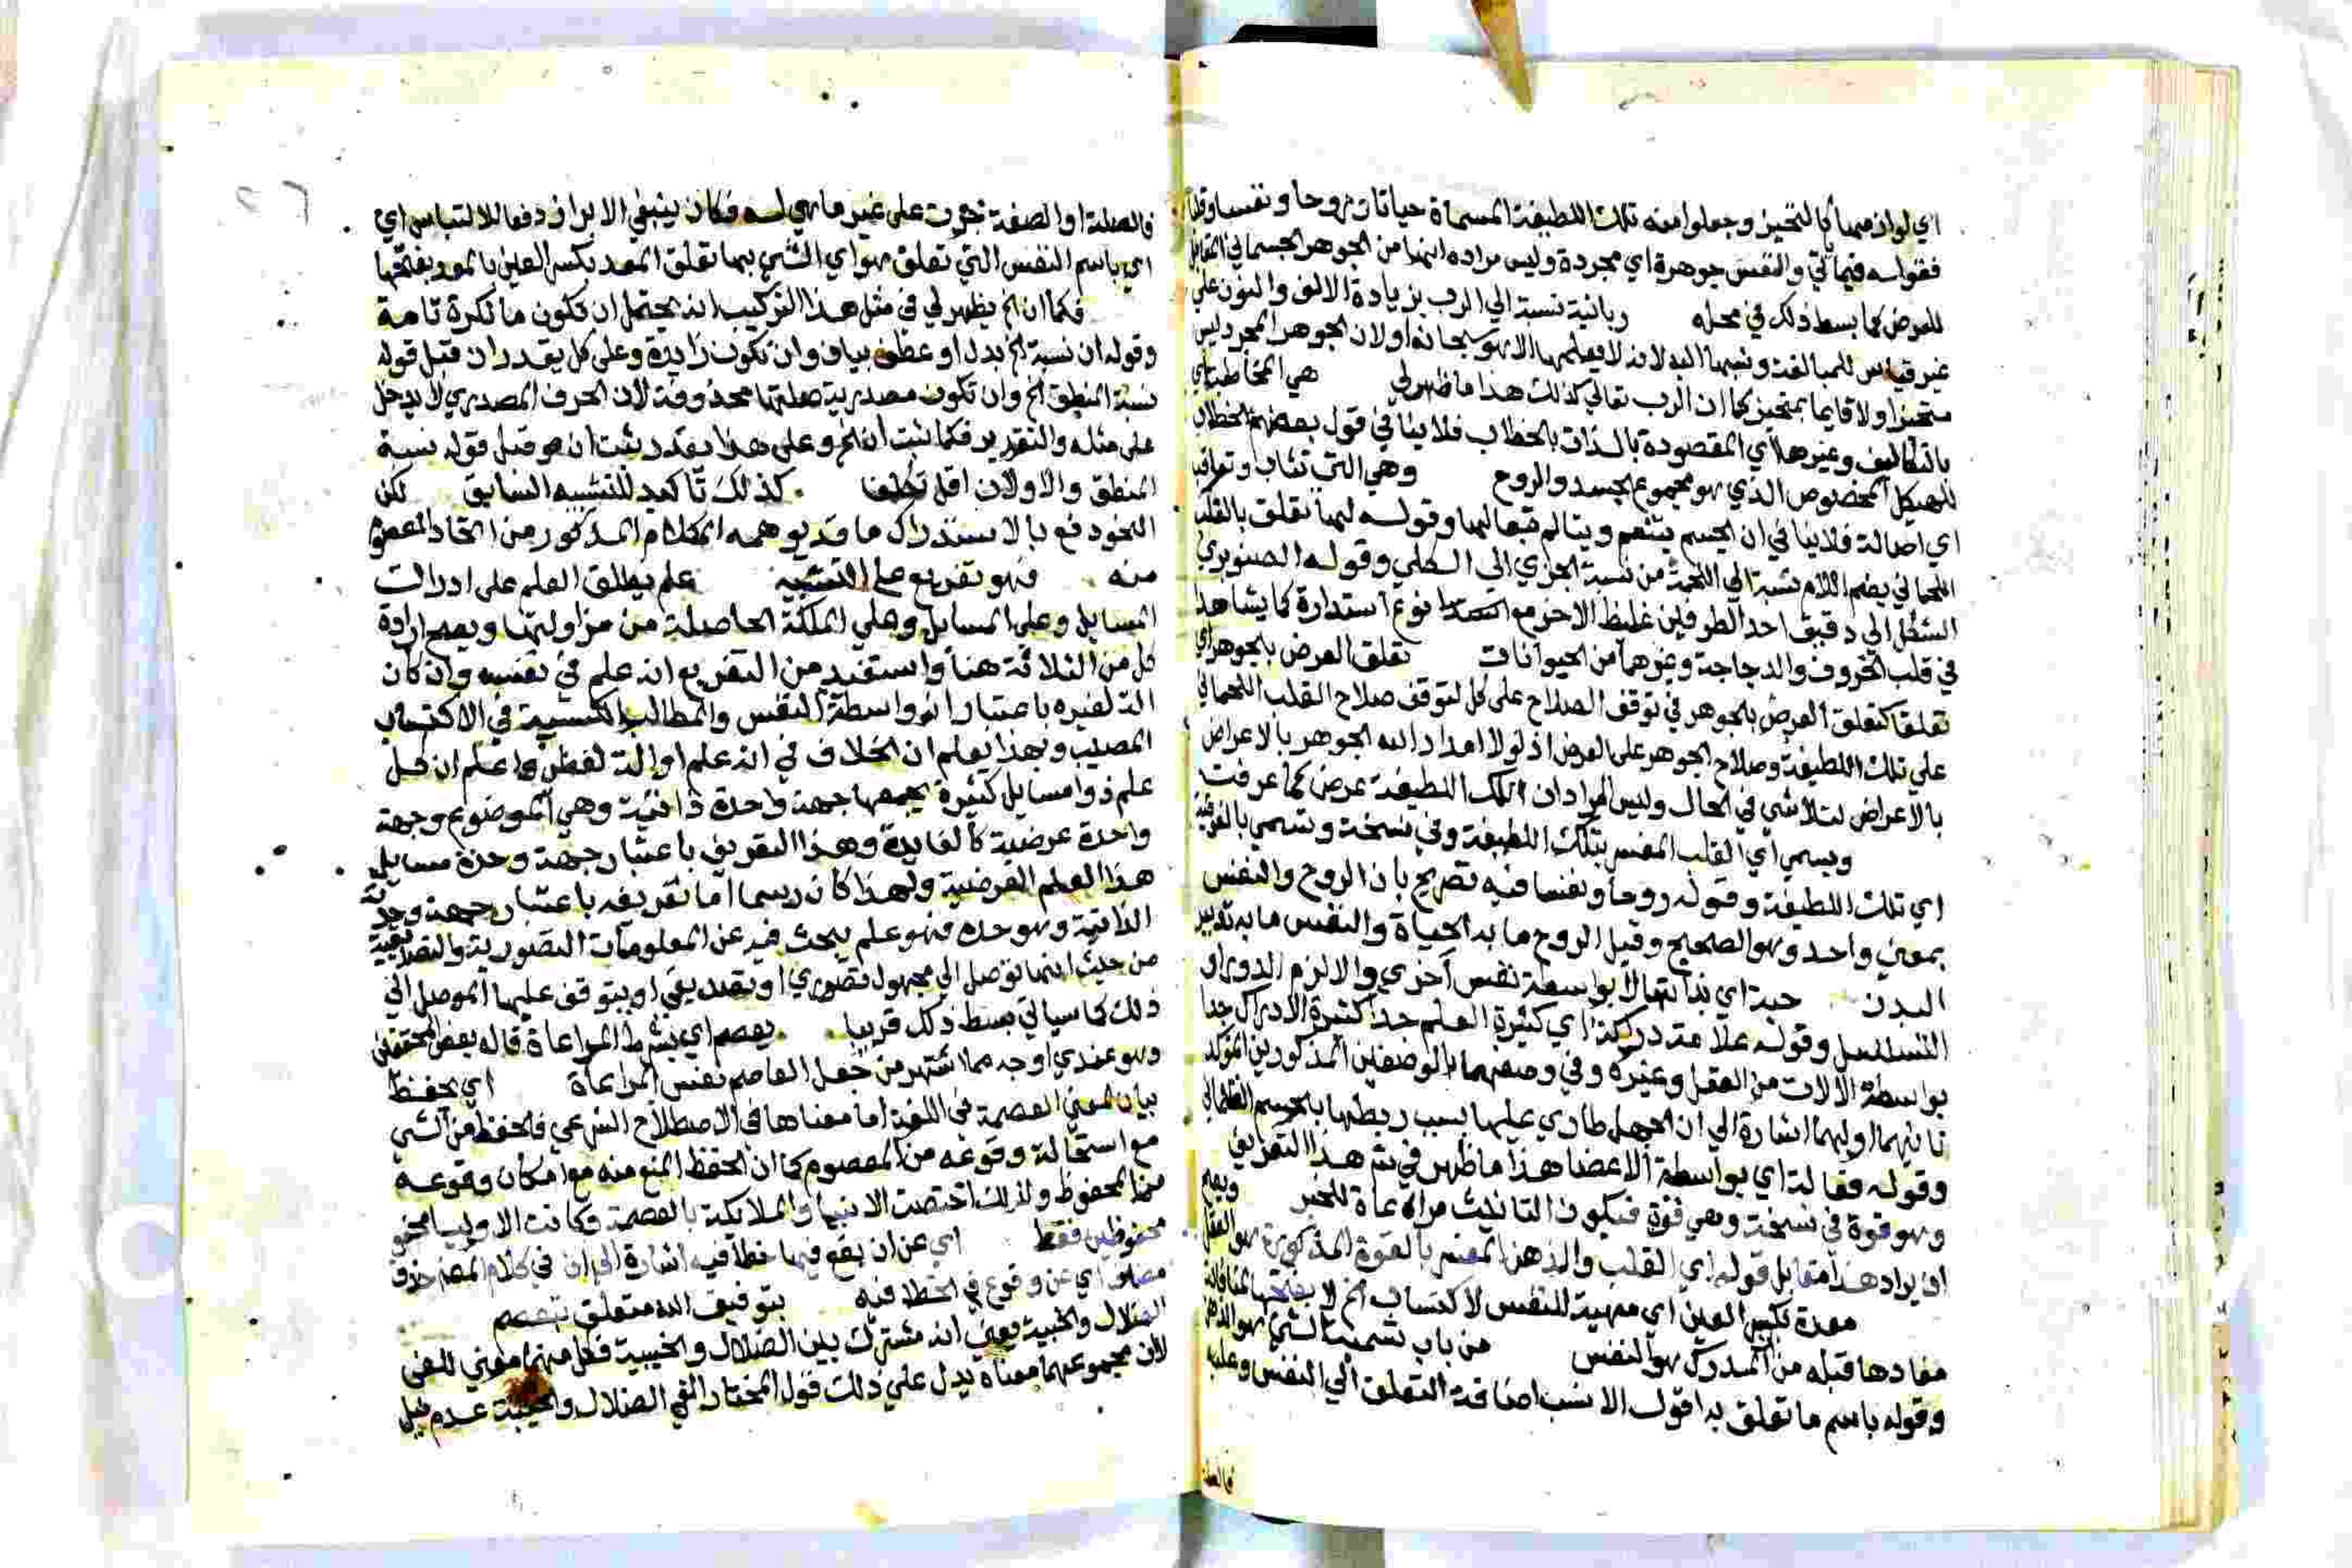 اي لوازمها كالتحيز وجعلوا منه تلك اللطيفة المسماة حياتا وروحا ونفسا وقلبا
فقوله فيما ياتي والنفس جوهرة اي مجردة وليس مراده انها من الجوهر الجسماني المقابل
للعرض كما بسط ذلك في محله ربانية نسبة الي الرب بزيادة الالف والنون علي
غير قياس للمبالغة ونسبها اليه لانه لا يعلمها الا هو سبحانه او لان الجوهر المجرد ليس
متحيزا ولا قايما بمتحيز كما ان الرب تعالي كذلك هذا ما ظهر لي هي المخاطبة اي
بالتكاليف وغيرها اي المقصودة بالذات بالخطاب فلا ينافي قول بعضهم الخطاب
للهيكل المخصوص الذي هو مجموع الجسد والروح وهي التي تثاب وتعاقب
اي اصالة فلا ينافي ان الجسم يتنعم ويتالم تبعا لها وقوله لها تعلق بالقلب
اللحماني بضم اللام نسبة الي اللحمة من نسبة الجزي الي الكلي وقوله الصنوبري
الشكل اي دقيق احد الطرفين غليظ الاخر مع نوع استدارة كما يشاهد
في قلب الخروف والدجاجة وغيرهما من الحيوانات تعلق العرض بالجوهر اي
تعلقا كتعلق العرض بالجوهر في توقف الصلاح علي كل لتوقف صلاح القلب اللحماني
علي تلك اللطيفة وصلاح الجوهر علي العرض اذ لولا امداد الله الجوهر بالاعراض
بالاعراض لتلاشي في الحال وليس المراد ان تلك اللطيفة عرض كما عرفت
ويسمي اي القلب المفسر بتلك اللطيفة وفي نسخة وتسمي بالفوقية
اي تلك اللطيفة وقوله روحا ونفسا فيه تصريح بان الروح والنفس
بمعني واحد وهو الصحيح وقيل الروح ما به الحياة والنفس ما به تدبير
البدن حية اي بذاتها لا بواسطة نفس اخري والا لزم الدور او
التسلسل وقوله علامة دراكة اي كثيرة العلم جدا كثيرة الادراك جدا
بواسطة الالات من العقل وغيره وفي وصفها بالوصفين المذكورين المؤكد
ثانيهما اولهما اشارة الي ان الجهل طاري عليها بسبب ربطها بالجسم الظلماني
وقوله فعالة اي بواسطة الاعضا هذا ما ظهر في هذا التعريف
وهو قوة في نسخة وهي قوة فيكون التانيث مراعاة للخبر ويصح
ان يراد هنا مقابل قوله اي القلب والذهن المفسر بالقوة المذكورة هو العقل
معدة بكسر العين اي مهيئة للنفس لاكتساب الخ لا بفتحها
مفادها قبله من المدرك هو النفس من باب تسمية الشي
وقوله باسم ما تعلق به اقول الانسب اضافة التعلق الي النفس وعليه
فالصلة
فالصلة او الصفة جرت علي غير ما هي له فكان ينبغي الابراز دفعا للالتباس اي
اي باسم النفس التي تعلق هو اي الشي بها تعلق المعد بكسر العين بالمعد بفتحها
فكما ان الخ يظهر لي في مثل هذا التركيب انه يحتمل ان تكون ما نكرة تامة
وقوله ان نسبة الخ بدل او عطف بيان وان تكون زايدة وعلي كل يقدر ان قبل قوله
نسبة المنطق الخ وان تكون مصدرية صلتها محذوفة لان الحرف المصدري لا يدخل
علي مثله والتقدير فكما ثبت ان الخ وعلي هذا يقدر ثبت ان هو قبل قوله نسبة
المنطق والاولان اقل تكلفا كذلك تاكيد للتشبيه السابق لكن
النحو دفع بالاستدراك ما قد يوهمه الكلام المذكور من اتحاد المعصوم
منه فهو تفريع علي التشبيه علم يطلق العلم علي ادراك
المسايل وعلي المسايل وعلي الملكة الحاصلة من مزاولتها ويصح ارادة
كل من الثلاثة هنا واستفيد من التفريع انه علم في نفسه وان كان
الة لغيره باعتبار انه واسطة النفس والمطالب الكسبية في الاكتساب
المصيب وبهذا يعلم ان الخلاف في انه علم او الة لفظي واعلم ان كل
علم ذو مسايل كثيرة يجمعها جهة واحدة ذاتية وهي الموضوع وجهة
واحدة عرضية كالفايدة وهذا التعريف باعتبار جهة وحدة مسايل
هذا العلم العرضية ولهذا كان رسما اما تعريفه باعتبار جهة وحدته
الذاتية وهو حده فهو علم يبحث فيه عن المعلومات التصورية والتصديقية
من حيث انها توصل الي مجهول تصوري او تصديقي او يتوقف عليها الموصل الي
ذلك كما سياتي بسط ذلك قريبا يعصم اي بشرط المراعاة قاله بعض المحققين
وهو عندي اوجه مما اشتهر من جعل العاصم نفس المراعاة اي يحفظ
بيان لمعني العصمة في اللغة اما معناها في الاصطلاح الشرعي فالحفظ من الشي
مع استحالة وقوعه من المعصوم كما ان الحفظ المنع منه مع امكان وقوعه
من المحفوظ ولذلك اختصت الانبيا والملايكة بالعصمة وكانت الاوليا
محفوظين فقط اي عن ان يقع فيها خطا فيه اشارة الي ان في كلام المص حذف
اي عن وقوع في الخطا فيه بتوفيق الله متعلق بتعصم
الضلال والخيبة يعني انه مشترك بين الضلال والخيبة فكل منهما معني للغي
لان مجموعهما معناه يدل علي ذلك قول المختار الغي الضلال والخيبة عدم نيل